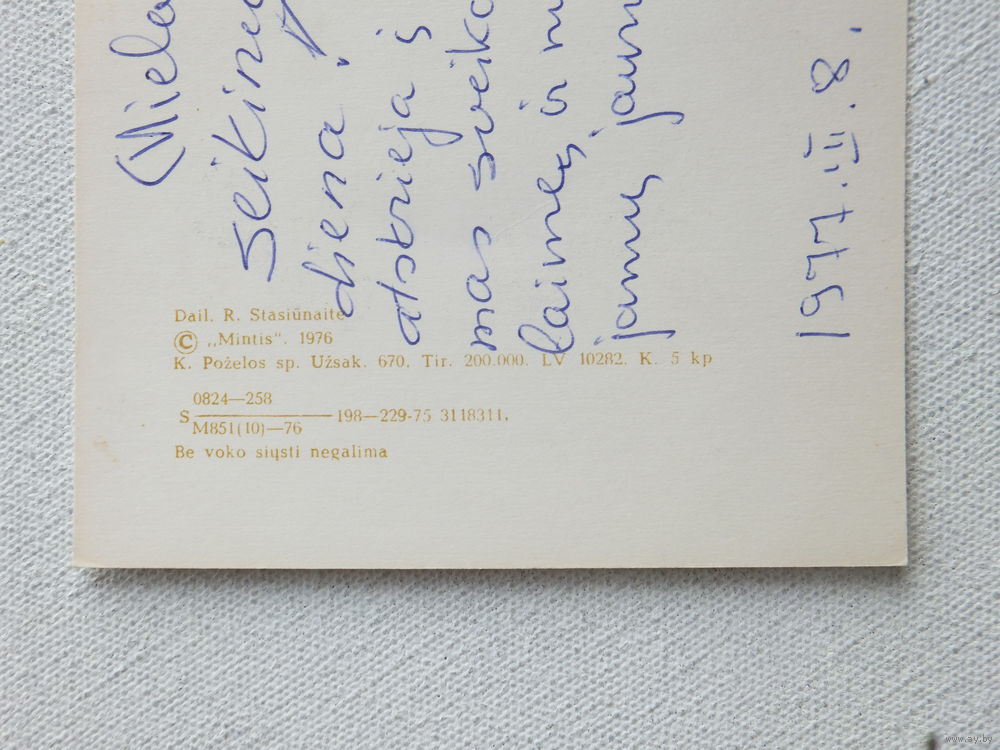 Miela
seikinu
diena!
atskrieja š
mas sveiko
laimės, ir n
jamų jaun
1977.III.8.
Dail. R. Stasiūnaitė
© „Mintis“. 1976
K. Poželos sp. Užsak. 670. Tir. 200.000. LV 10282. K. 5 kp
S 0824—258
M851(10)—76 198—229-75 3118311.
Be voko siųsti negalima
www.ay.by